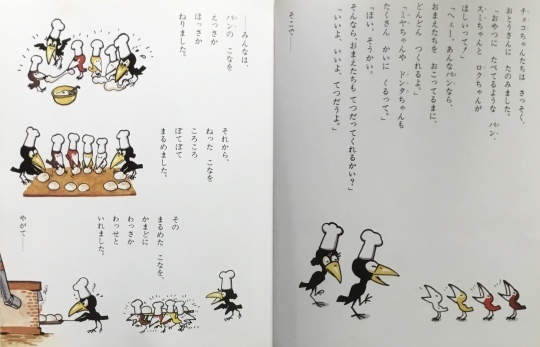 チョコちゃんたちは さっそく、
おとうさんに たのみました。
「おやつに たべてるような パン、
スミちゃんと ロクちゃんが
ほしいって！」
「へぇー。あんなパンなら、
おまえたちを おこってるまに、
どんどん つくれるよ。」
「ミヤちゃんや ドンタちゃんも
たくさん かいに くるって。」
「ほい、そうかい。
そんなら、おまえたちも てつだってくれるかい？」
「いいよ、いいよ、てつだうよ。」
そこで——
——みんなは、
パンの こなを
えっさか
ほっさか
ねりました。
それから、
ねった こなを
ころころ
ぽてぽて
まるめました。
その
まるめた こなを、
かまどに
わっさか
わっせと
いれました。
やがて——